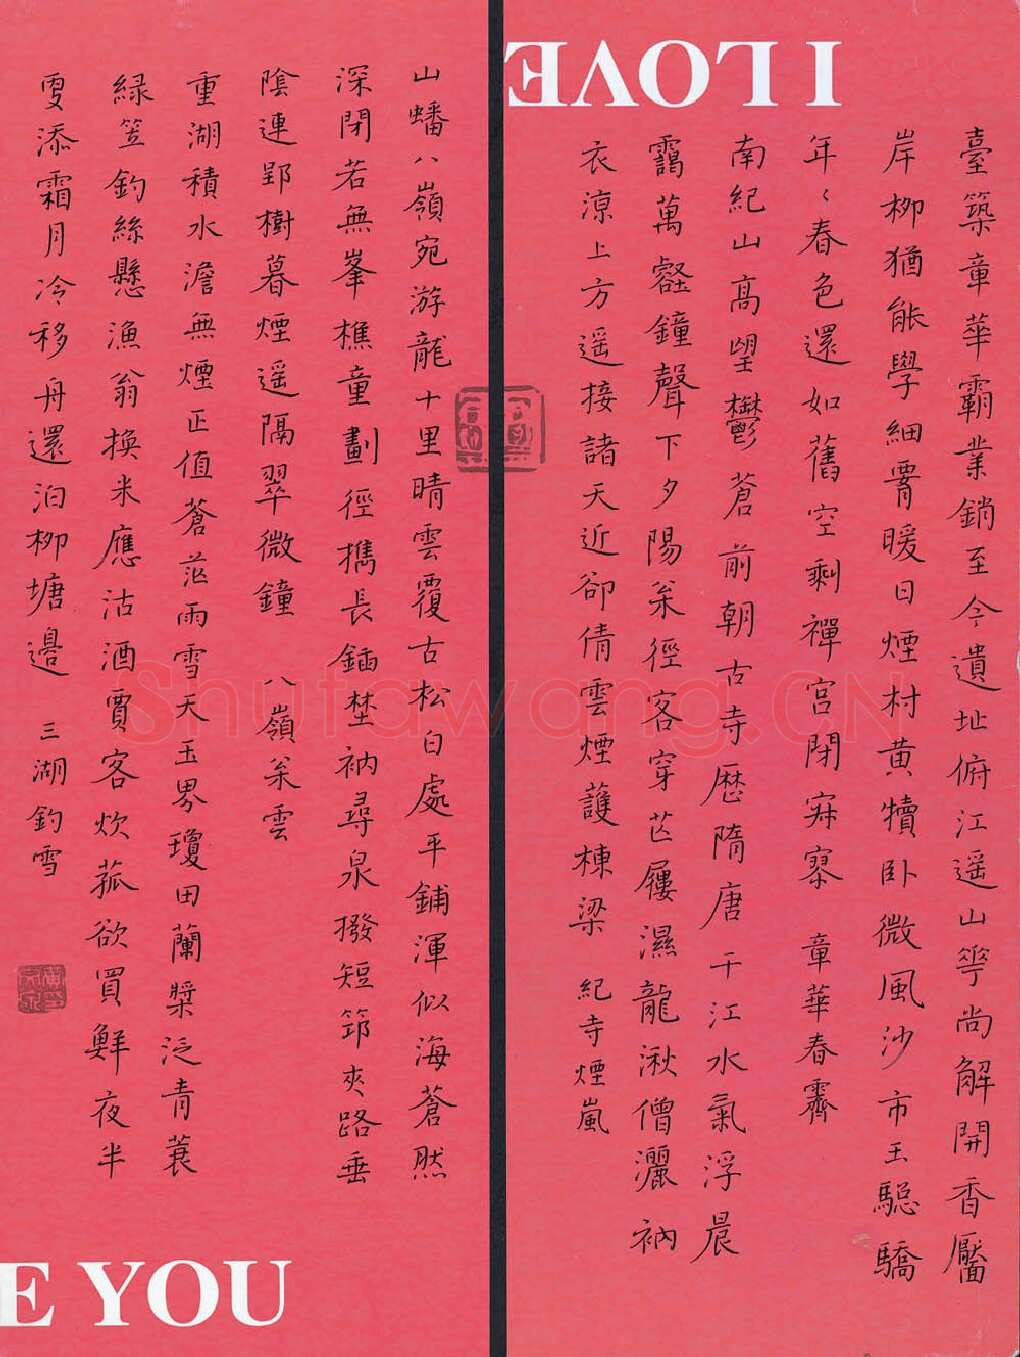 I LOVE
臺築章華霸業銷至今遺址俯江遥山花尚解開香靨
岸柳猶能學細腰暖日煙村黄犢卧微風沙市玉驄驕
年々春色還如舊空剩禪宫閉寂寥 章華春霽
南紀山高望鬱蒼前朝古寺歷隋唐千江水氣浮晨
靄萬壑鐘聲下夕陽采徑客穿芒屩濕龍湫僧灑衲
衣涼上方遥接諸天近卻倩雲煙護棟梁 紀寺煙嵐
山蟠八嶺宛游龍十里晴雲覆古松白處平鋪渾似海蒼然
深閉若無峯樵童劃徑攜長鍤埜衲尋泉撥短筇夾路垂
陰連郢樹暮煙遥隔翠微鐘 八嶺采雲
重湖積水澹無煙正值蒼茫雨雪天玉界瓊田蘭槳泛青蓑
緑笠釣絲懸漁翁換米應沽酒賈客炊菰欲買鮮夜半
更添霜月冷移舟還泊柳塘邊 三湖釣雪
E YOU
Shufawang.CN